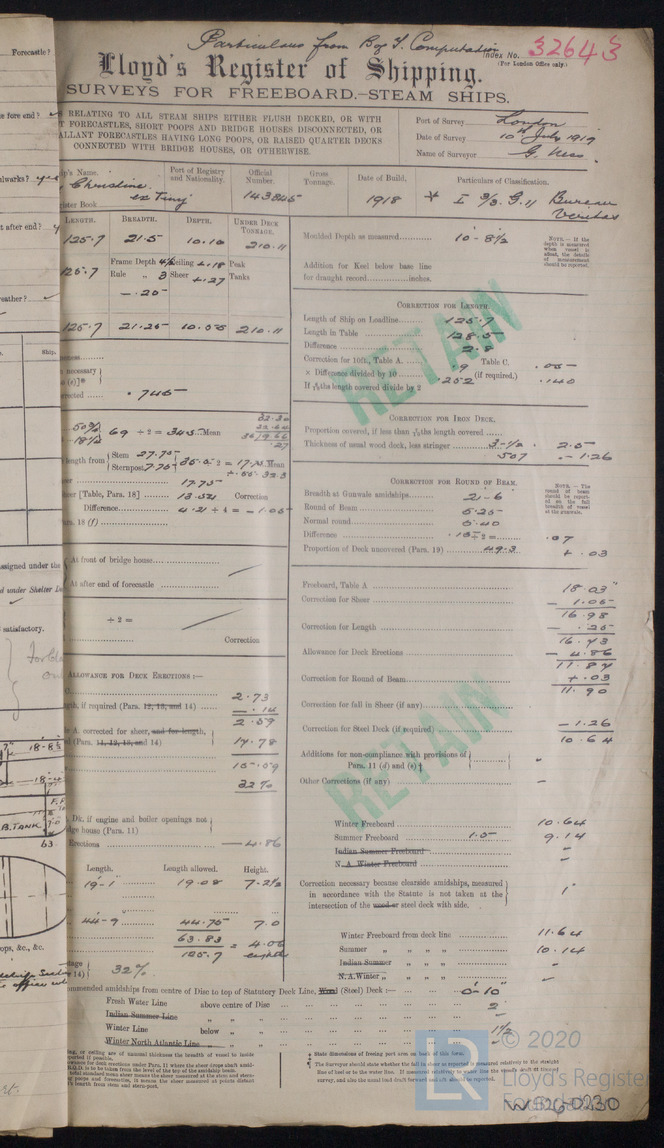 Particulars from B of T. Computation
Index No. 32643
(For London Office only.)
Lloyd's Register of Shipping.
SURVEYS FOR FREEBOARD.—STEAM SHIPS.
RELATING TO ALL STEAM SHIPS EITHER FLUSH DECKED, OR WITH
FORECASTLES, SHORT POOPS AND BRIDGE HOUSES DISCONNECTED, OR
ALLANT FORECASTLES HAVING LONG POOPS, OR RAISED QUARTER DECKS
CONNECTED WITH BRIDGE HOUSES, OR OTHERWISE.
Port of Survey London
Date of Survey 10th July 1919
Name of Surveyor G.
Forecastle?
fore end?
ulwarks? yes
after end?
eather?
Ship.
ip's Name. Port of Registry and Nationality. Official Number. Gross Tonnage. Date of Build. Particulars of Classification.
Christine
ex Tiny
143345
1918
I 3/3. G. 11 Bureau
Veritas
LENGTH. BREADTH. DEPTH. UNDER DECK TONNAGE.
125.7 21.5 10.10 210.11
Frame Depth Ceiling +.18 Peak
Rule „ 3 Sheer +.27 Tanks
— .25
125.7 21.25 10.55 210.11
corrected ...... .745
69 ÷ 2 = 34.5 Mean
length from Stem 27.75
Sternpost 7.75 35.5 ÷ 2 = 17.75 Mean
17.75
[Table, Para. 18] 13.54 Correction
Difference 4.21 ÷ 4 = — 1.05
ara. 18 (f)
At front of bridge house
At after end of forecastle
÷ 2 =
Correction
ALLOWANCE FOR DECK ERECTIONS :—
2.73
if required (Para. 12, 13, and 14) — .14
2.59
A. corrected for sheer, and for length,
(Para. 11, 12, 13, and 14) 17.78
15.19
32%
Dk. if engine and boiler openings not
house (Para. 11)
Erections — 4.86
Length. Length allowed. Height.
19-1 19.08 7-2½
44-9 44.75 7.0
63.83
125.7
32%
Moulded Depth as measured 10 - 8½
Addition for Keel below base line
for draught record inches.
NOTE.—If the depth is measured when vessel is afloat, the details of measurement should be reported.
CORRECTION FOR LENGTH.
Length of Ship on Loadline 125.7
Length in Table 128.5
Difference 2.8
Correction for 10ft., Table A. .9 Table C. .05
× Difference divided by 10 .252 (if required.) .140
CORRECTION FOR IRON DECK.
Thickness of usual wood deck, less stringer 3-½ 2.5
.507 — 1.26
CORRECTION FOR ROUND OF BEAM.
Breadth at Gunwale amidships 21-6
Round of Beam 5.25
Normal round 5.40
Difference .15 ÷ 2 = .07
Proportion of Deck uncovered (Para. 19) 49.3 + .03
NOTE.—The round of beam should be reported on the full breadth of vessel at the gunwale.
Freeboard, Table A 18.03"
Correction for Sheer — 1.05
16.98
Correction for Length — .25
16.73
Allowance for Deck Erections — 4.86
11.87
Correction for Round of Beam + .03
11.90
Correction for fall in Sheer (if any)
Correction for Steel Deck (if required) — 1.26
10.64
Additions for non-compliance with provisions of
Para. 11 (d) and (e)
Other Corrections (if any) —
Winter Freeboard 10.64
Summer Freeboard 1.5 9.14
Indian Summer Freeboard —
N.A. Winter Freeboard —
Correction necessary because clearside amidships, measured
in accordance with the Statute is not taken at the
intersection of the wood or steel deck with side. 1"
Winter Freeboard from deck line 11.64
Summer „ „ „ „ 10.14
Indian Summer „ „ „ —
N.A. Winter „ „ „ „ —
mmended amidships from centre of Disc to top of Statutory Deck Line, Wood (Steel) Deck :— 0-10"
Fresh Water Line above centre of Disc 2"
Indian Summer Line „ „
Winter Line below „ 1½
Winter North Atlantic Line „ „ —
State dimensions of freeing port area on back of this form.
RETAIN
RETAIN
B. TANK
18-8½
63
LR
© 2020
Lloyd's Register
W526-0230